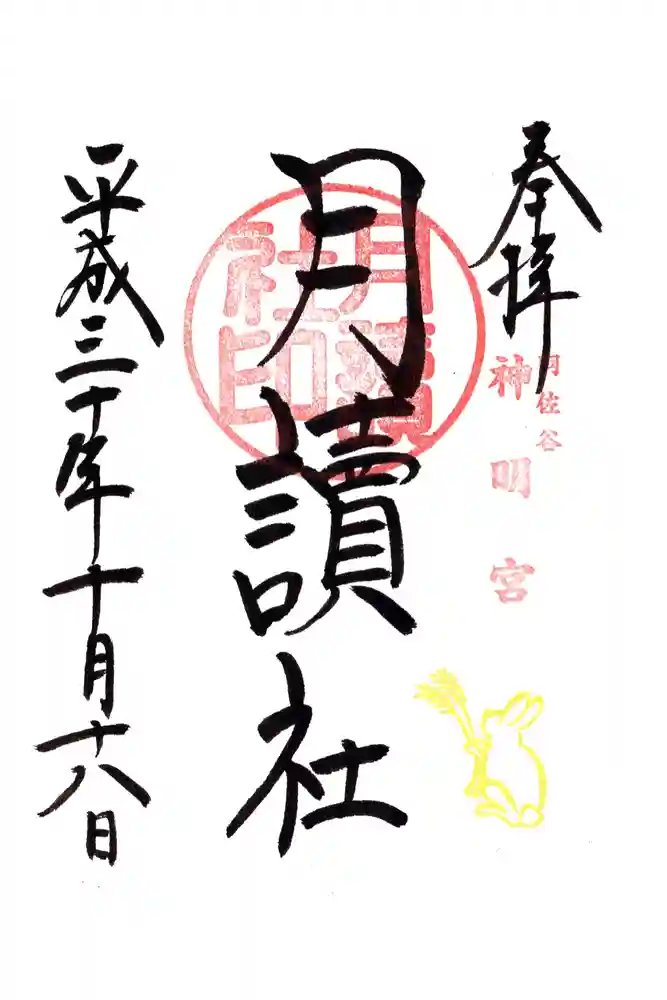 奉拝
阿佐谷
神明宮
月讀社
月讀社印
平成三十年十月十八日